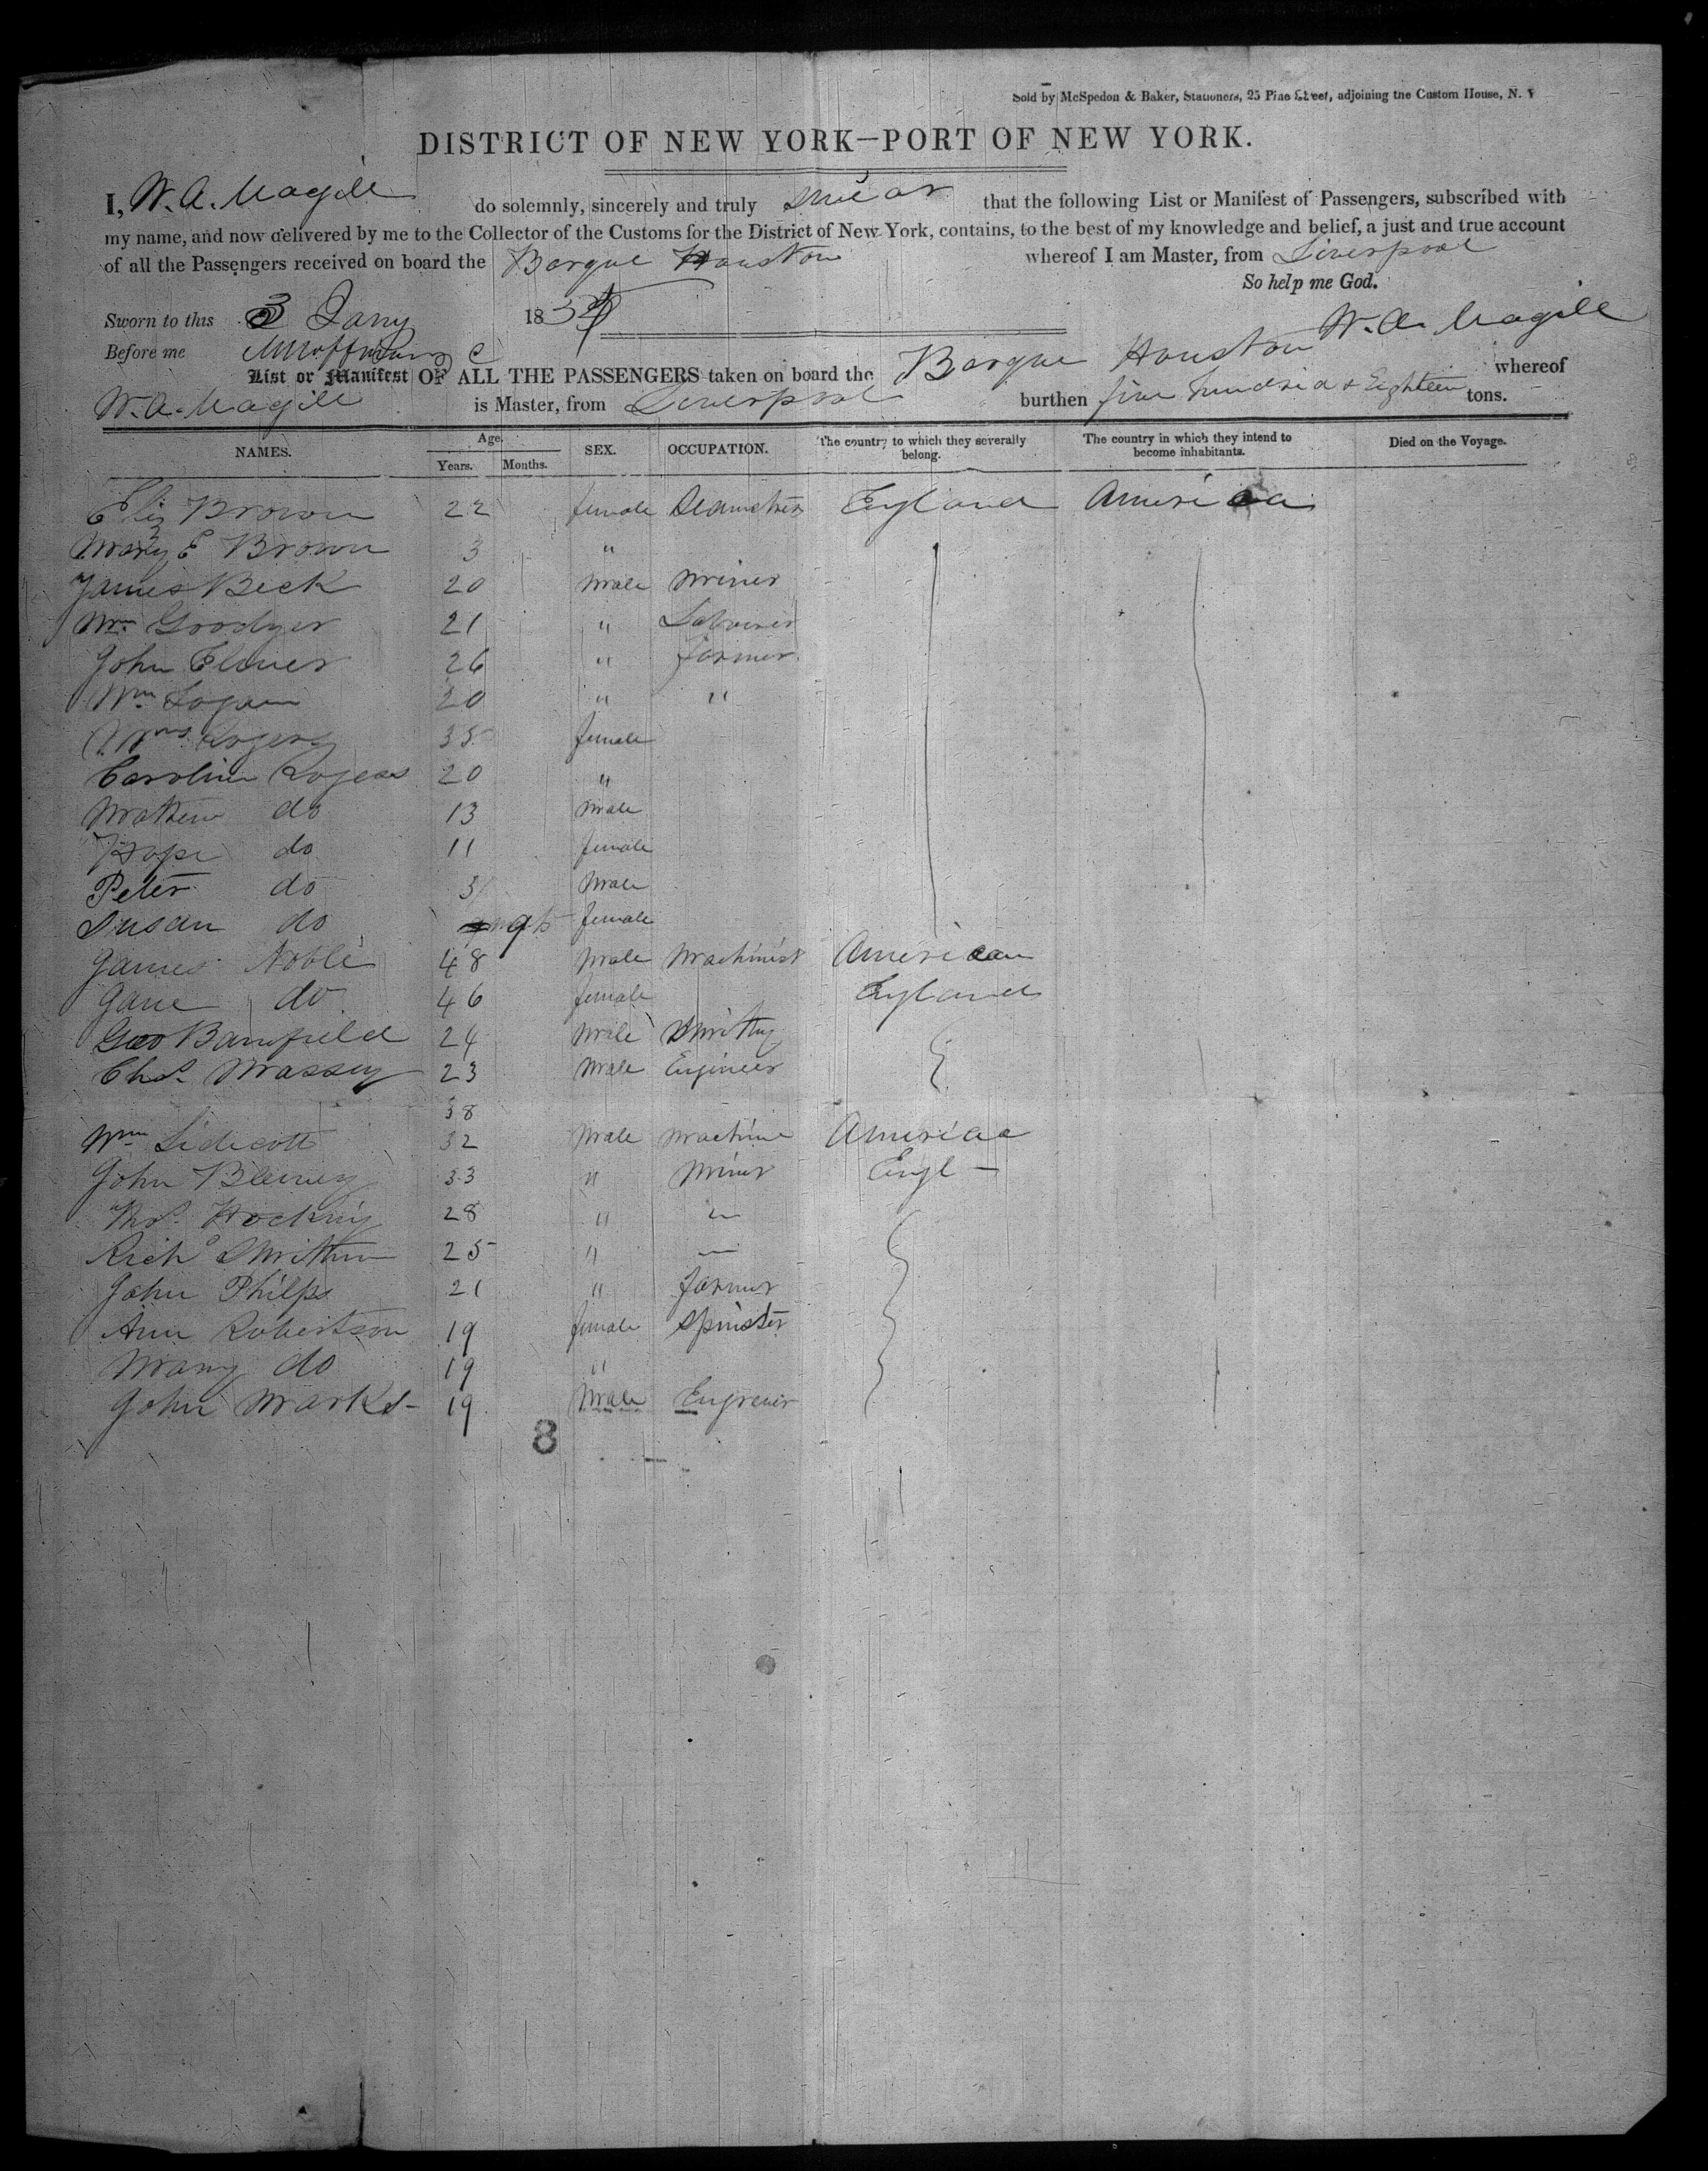 Sold by McSpedon & Baker, Stationers, 25 Pine Street, adjoining the Custom House, N. Y
DISTRICT OF NEW YORK—PORT OF NEW YORK.
I, W. A. Magill do solemnly, sincerely and truly swear that the following List or Manifest of Passengers, subscribed with
my name, and now delivered by me to the Collector of the Customs for the District of New York, contains, to the best of my knowledge and belief, a just and true account
of all the Passengers received on board the Barque Houston whereof I am Master, from Liverpool
So help me God.
Sworn to this 3 Jany 185
W. A. Magill
Before me
List or Manifest OF ALL THE PASSENGERS taken on board the Barque Houston whereof
W. A. Magill is Master, from Liverpool burthen five hundred & Eighteen tons.
NAMES. Age. Years. Months. SEX. OCCUPATION. The country to which they severally belong. The country in which they intend to become inhabitants. Died on the Voyage.
Eliz Brown 22 female Seamstress England America
Mary E Brown 3 "
James Beck 20 Male Miner
Wm Goodyer 21 " Labourer
John Elever 26 " farmer
Wm Logan 20 " "
Mrs Rogers 35 female
Caroline Rogers 20 "
Mathew do 13 Male
Hope do 11 female
Peter do 3 Male
Susan do female
James Noble 48 Male Machinist American
Jane do 46 female England
Geo Bamfield 24 Male Smithy
Chas. Massey 23 Male Engineer
38
Wm Lidicott 32 Male Machine America
John Bleiney 33 " Miner Engl —
Thos. Hocking 28 " "
Richd Smithm 25 " —
John Philps 21 " farmer
Ann Robertson 19 female Spinster
Mary do 19 "
John Marks 19 Male Engraver
8